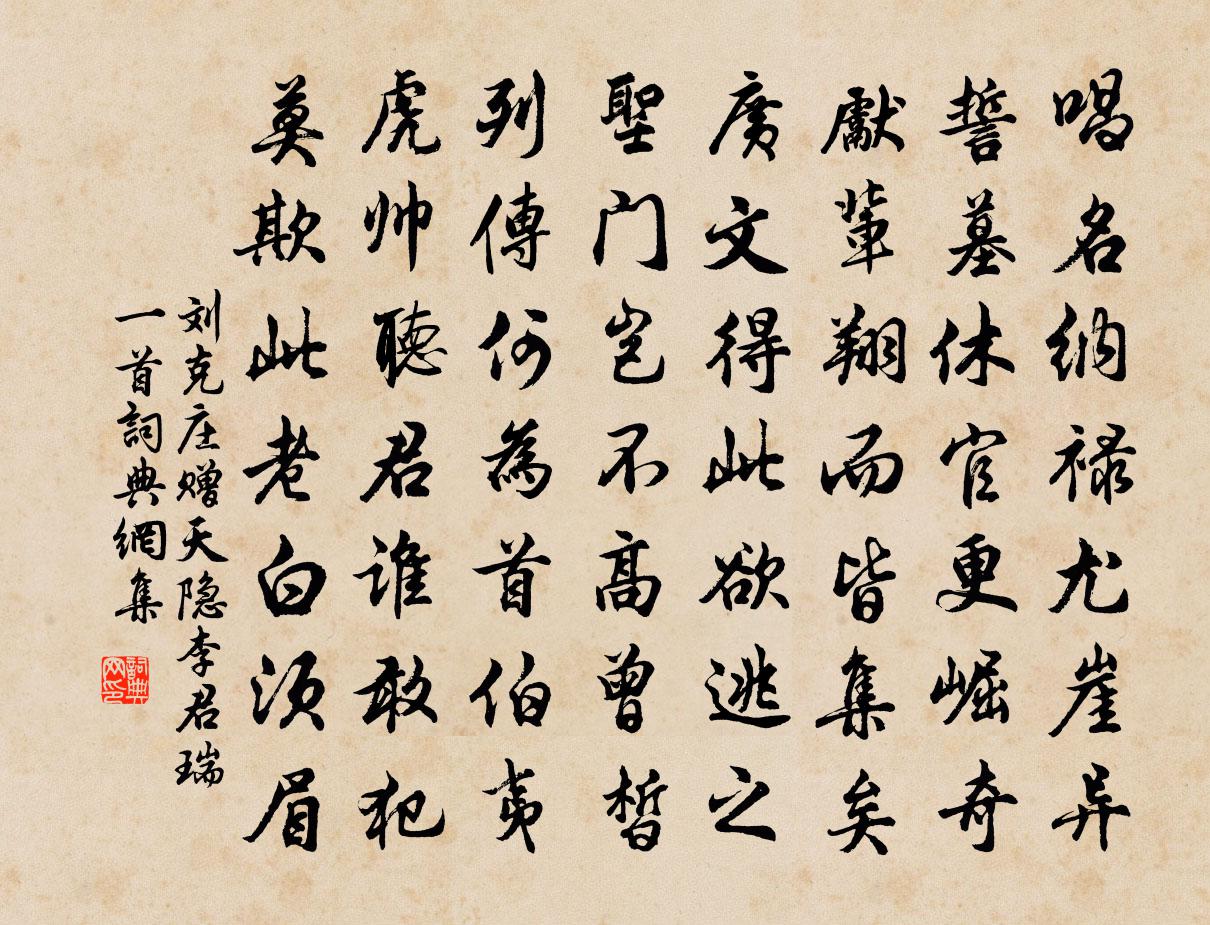 唱名纳禄尤崖异
誓墓休官更崛奇
献辈翔而皆集矣
广文得此欲逃之
聖门岂不高曾晳
列傳何為首伯夷
虎帅聽君谁敢犯
莫欺此老白须眉
刘克庄赠天隐李君瑞
一首詞典網集
詞典
网印